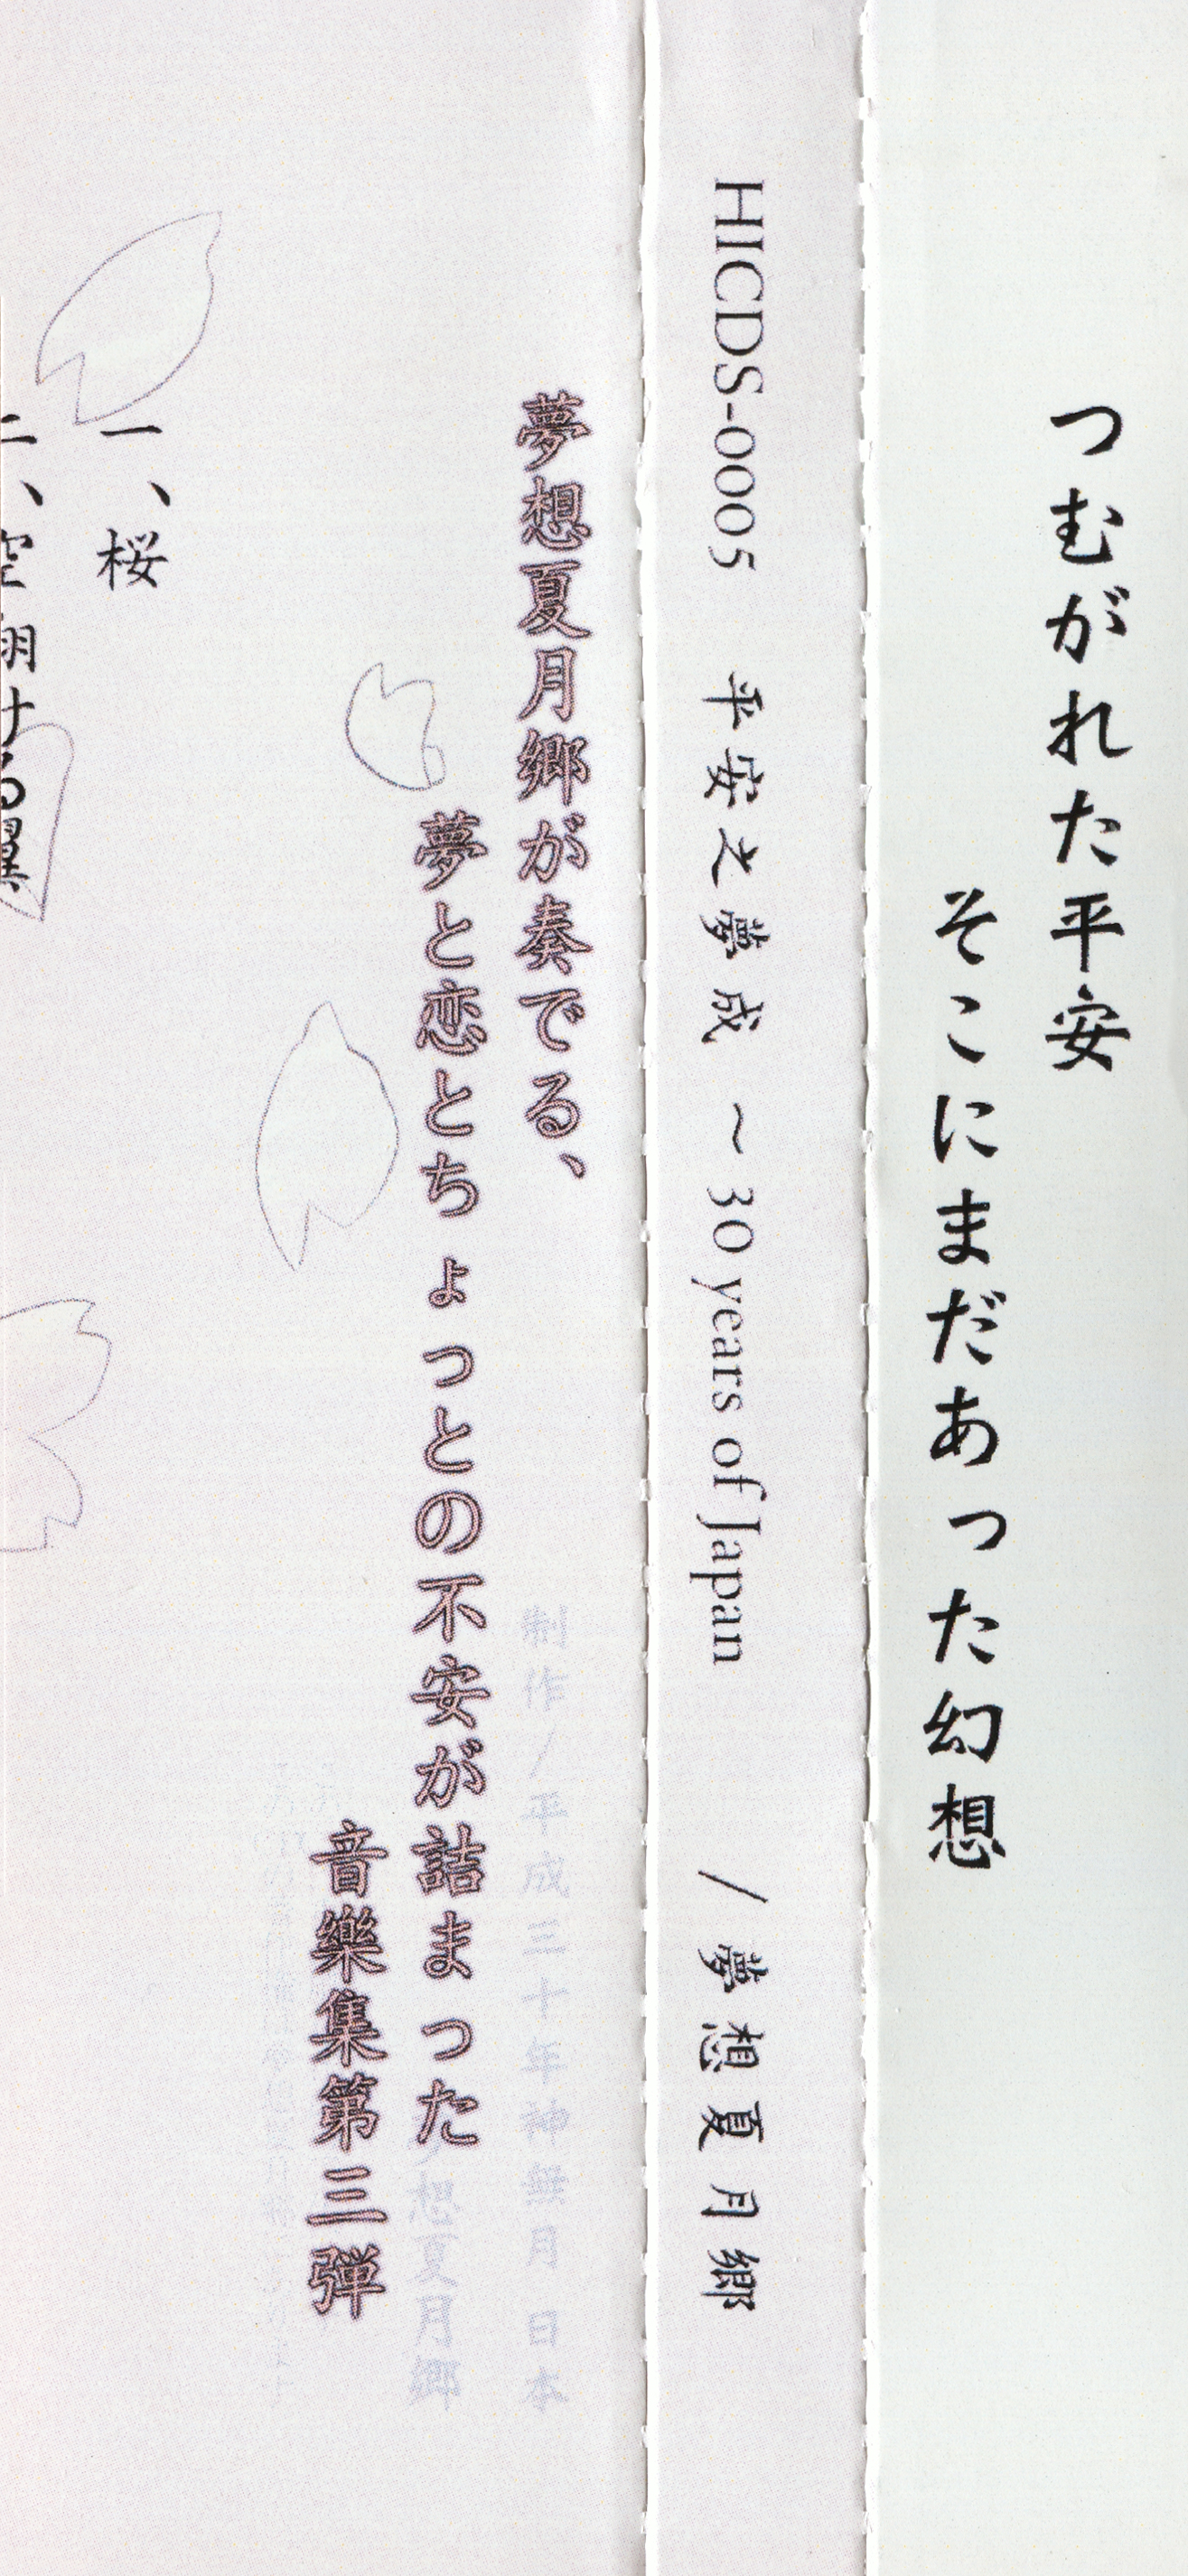 つむがれた平安
そこにまだあった幻想
HICDS-0005 平安之夢成 ～30 years of Japan / 夢想夏月郷
夢想夏月郷が奏でる、
夢と恋とちょっとの不安が詰まった
音樂集第三弾
制作/平成三十年神無月 日本
想夏月郷
一、桜
二、空翔ける翼